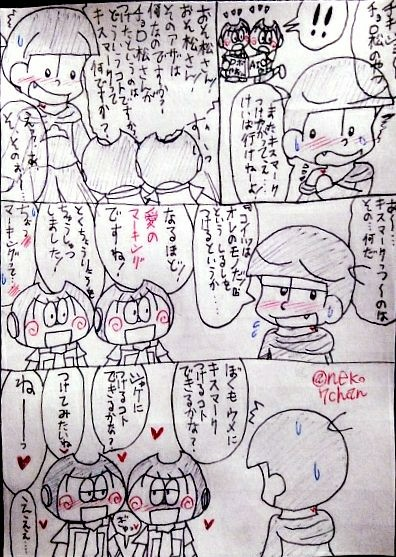 チキショー
チョロ松のヤツ
またキスマーク
つけやがってぇ…
けいは行けねーよ
!!
おそ松さん!
おそ松さん!
そのアザは
何なのですウ〜?
チョロ松さんが
つけたというコトですか?
キスマークって
何ですか?
すーっ
え?あ、
そ、そのぉ〜…
あ〜…
キスマークっつ〜のは
その…何だ…
「コイツは
オレのモノだ」
というしるしを
つけるというか…
なるほど!
愛の
マーキング
ですね!
ちゅうしゅつ
しました!
マーキングて…
@neko
7chan
ぼくもウメに
キスマーク
つけるコト
できるかな?
ジャケに
つけるコト
できるかな?
つけてみたいね
ねーっ
ぎゅっ
え、えぇぇ…